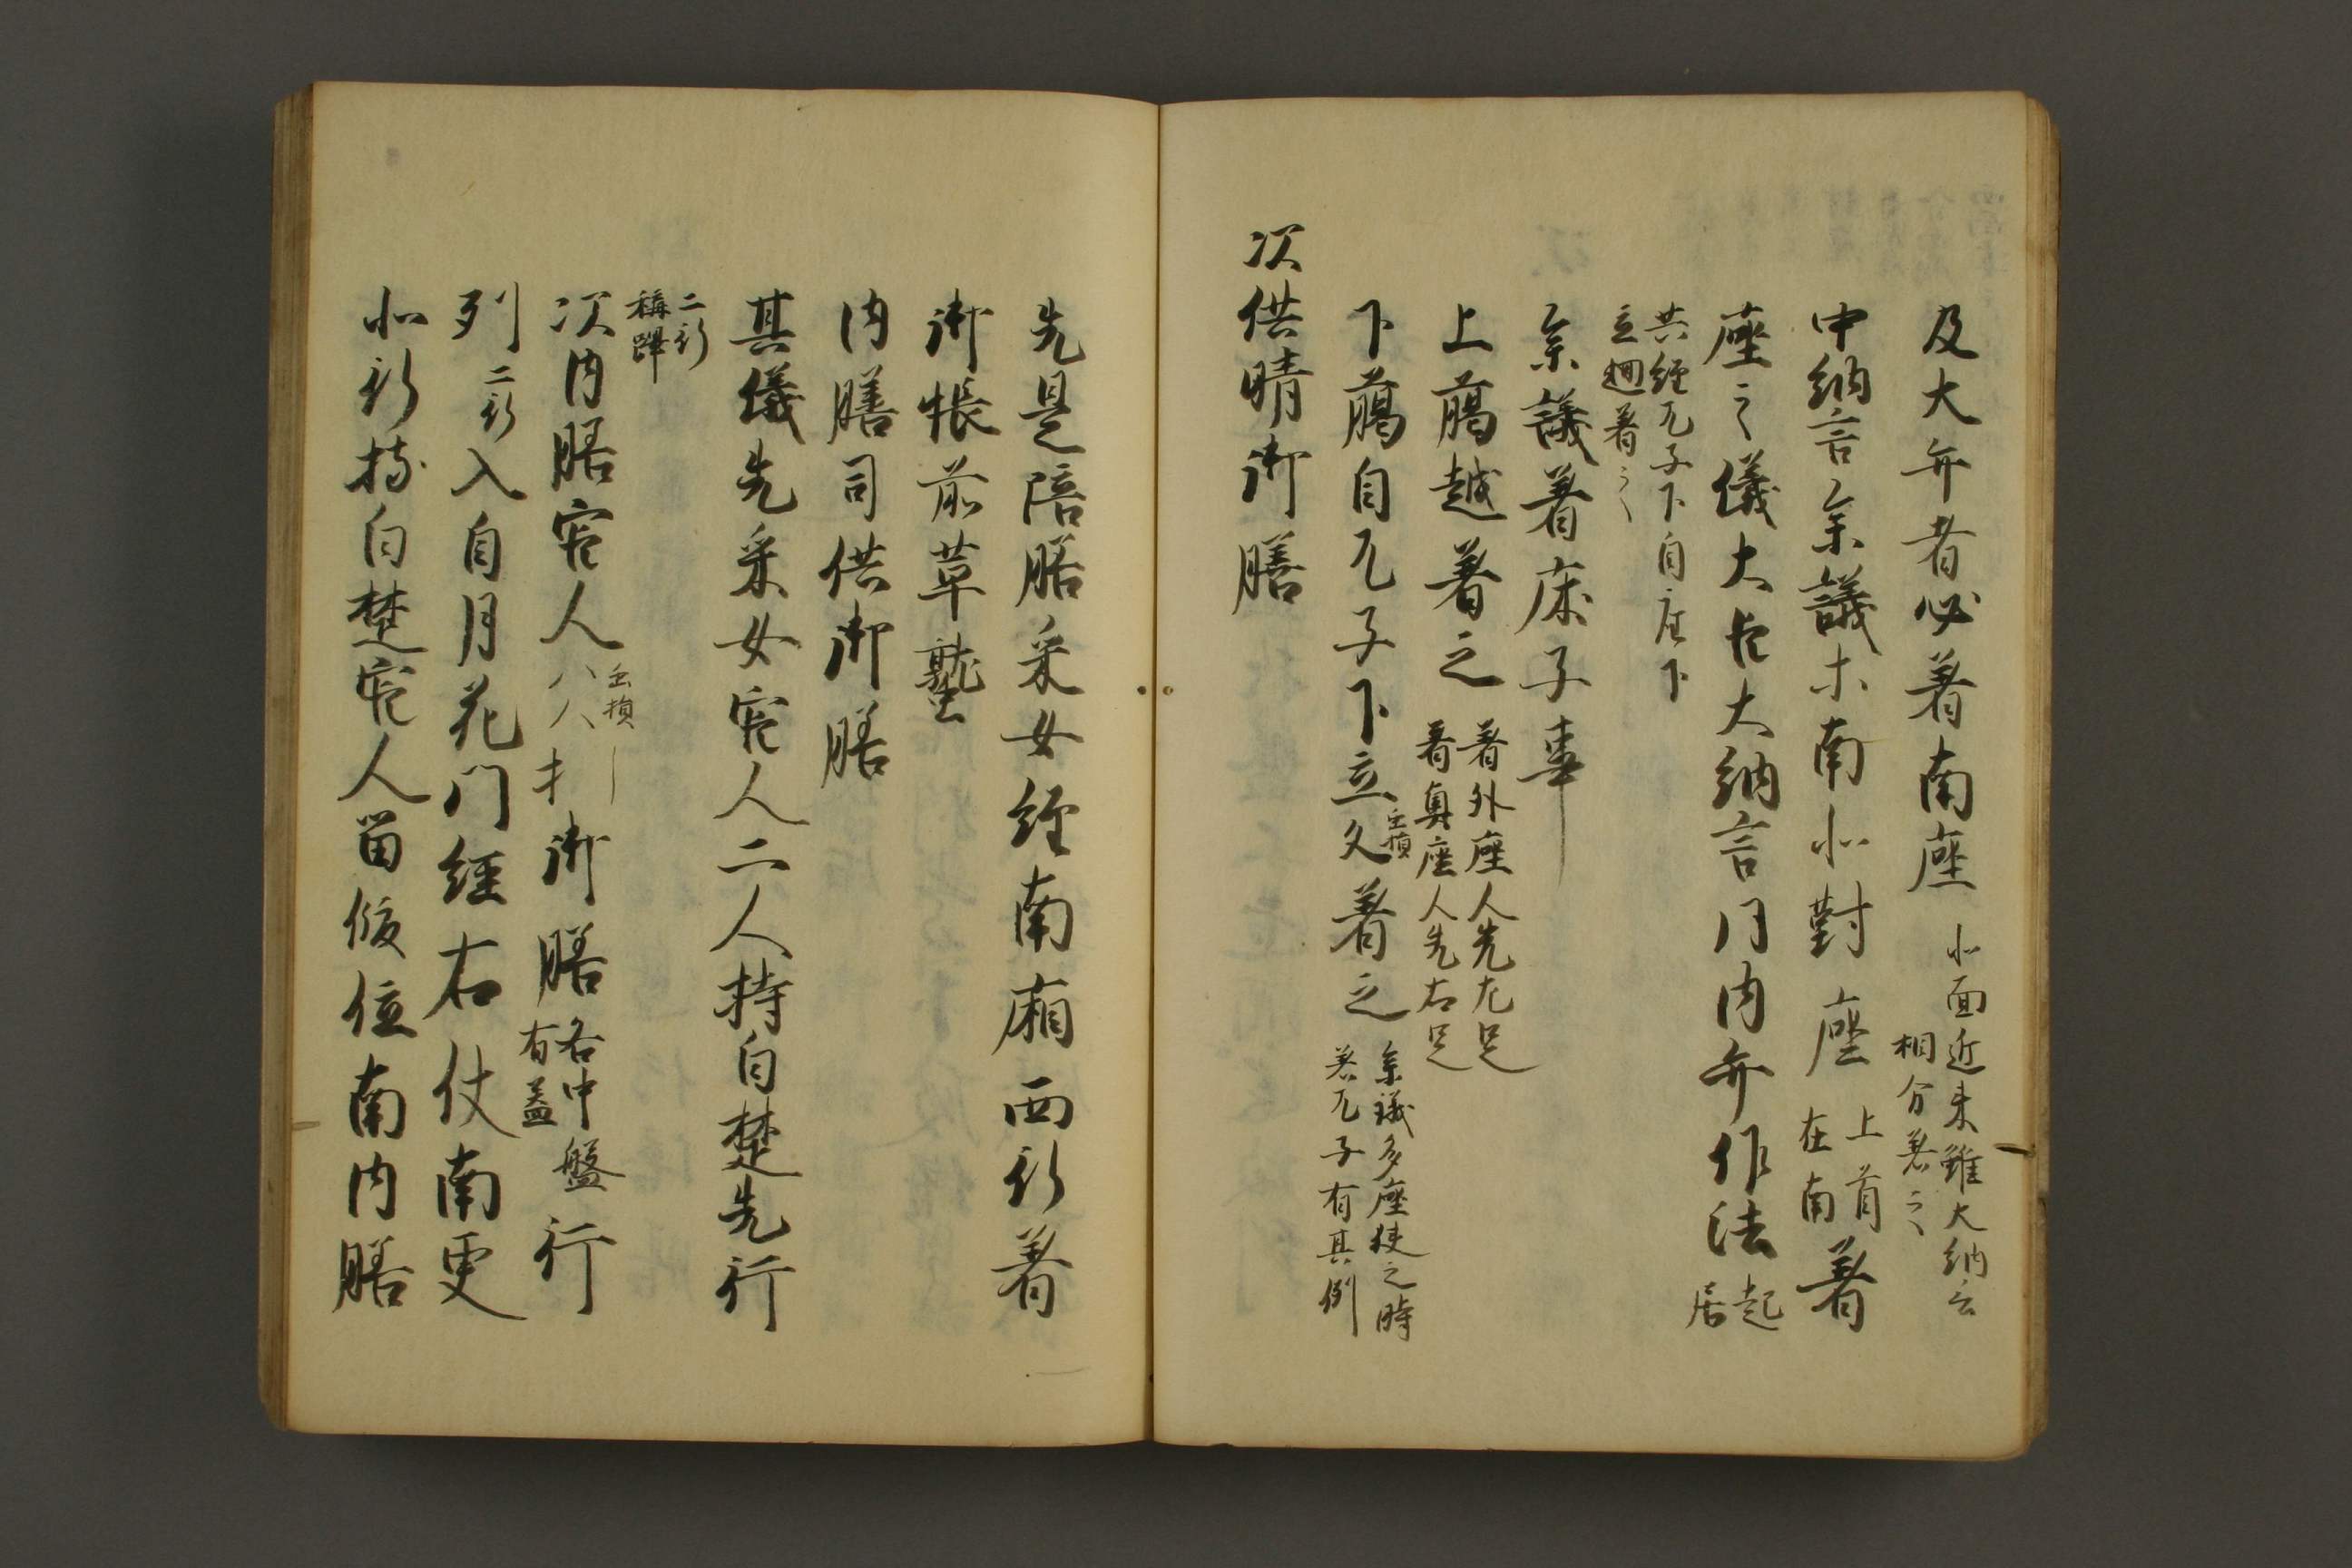 及大弁者必着南座 北面近来雖大納言
相分着之
中納言参議木南北対座 上首
在南 着
座之儀大臣大納言同内弁作法 起
居
共経兀子下自座下
立廻着之
参議着床子事
上臈越着之 着外座人先左足
着奥座人先右足
下臈自兀子下立 虫損 久着之 参議多座狭之時
着兀子有其例
次供晴御膳
先是陪膳采女経南廂西行着
御帳前草墪
内膳司供御膳
其儀先采女官人二人持白楚先行
二行
称蹕
次内膳官人 虫損 八人 扌御膳 各中盤
有蓋 行
列 二行 入自月花門経右仗南更
北行持白楚官人留版位南内膳